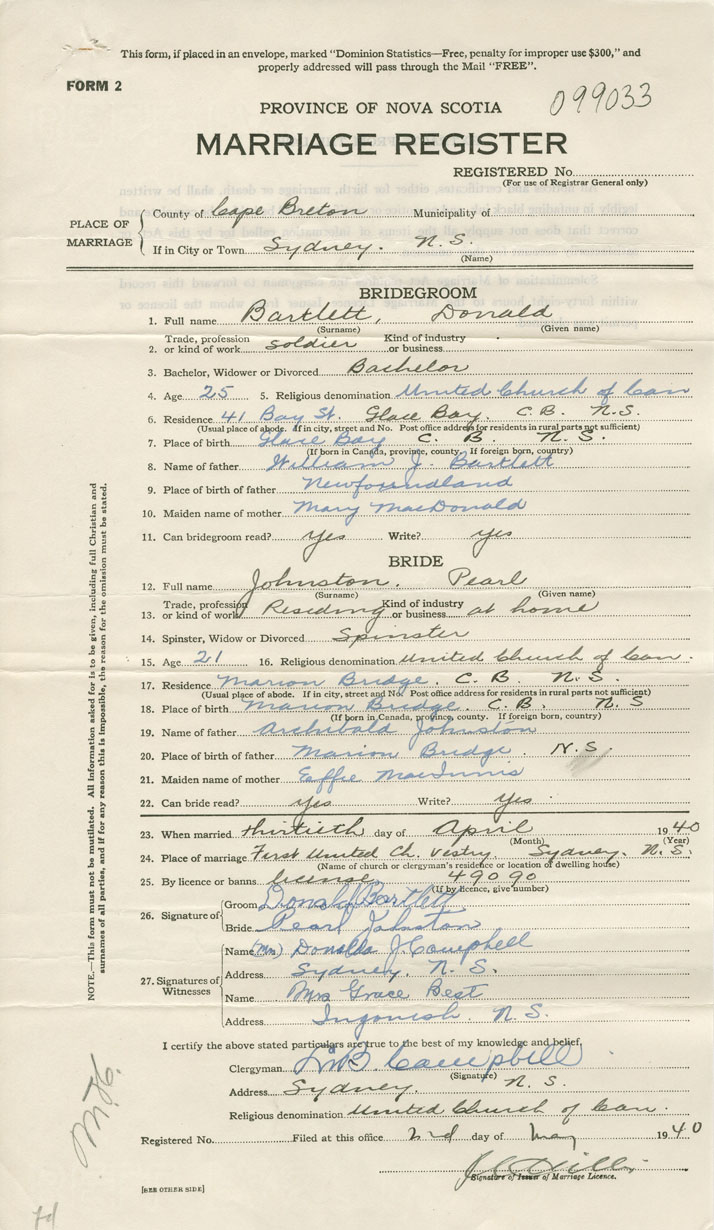 This form, if placed in an envelope, marked "Dominion Statistics—Free, penalty for improper use $300," and
properly addressed will pass through the Mail "FREE".
FORM 2
099033
PROVINCE OF NOVA SCOTIA
MARRIAGE REGISTER
REGISTERED No.
(For use of Registrar General only)
PLACE OF MARRIAGE
County of Cape Breton Municipality of
If in City or Town Sydney. N.S.
(Name)
BRIDEGROOM
1. Full name Bartlett, Donald
(Surname) (Given name)
2. Trade, profession or kind of work soldier Kind of industry or business
3. Bachelor, Widower or Divorced Bachelor
4. Age 25 5. Religious denomination United Church of Can
6. Residence 41 Bay St. Glace Bay. C.B. N.S.
(Usual place of abode. If in city, street and No. Post office address for residents in rural parts not sufficient)
7. Place of birth Glace Bay C. B. N.S.
(If born in Canada, province, county. If foreign born, country)
8. Name of father William J. Bartlett
9. Place of birth of father Newfoundland
10. Maiden name of mother Mary MacDonald
11. Can bridegroom read? yes Write? yes
BRIDE
12. Full name Johnston. Pearl
(Surname) (Given name)
13. Trade, profession or kind of work Residing Kind of industry or business at home
14. Spinster, Widow or Divorced Spinster
15. Age 21 16. Religious denomination United Church of Can.
17. Residence Marion Bridge. C.B. N.S.
(Usual place of abode. If in city, street and No. Post office address for residents in rural parts not sufficient)
18. Place of birth Marion Bridge. C.B. N.S
(If born in Canada, province, county. If foreign born, country)
19. Name of father Archibald Johnston
20. Place of birth of father Marion Bridge. N.S.
21. Maiden name of mother Eaffie MacInnis
22. Can bride read? yes Write? yes.
23. When married thirtieth day of April 1940
(Month) (Year)
24. Place of marriage First United Ch. Vestry, Sydney. N.S.
(Name of church or clergyman's residence or location of dwelling house)
25. By licence or banns license 49090
(If by licence, give number)
26. Signature of
Groom Donald Bartlett
Bride Pearl Johnston
27. Signatures of Witnesses
Name (Mrs) Donalda J. Campbell
Address Sydney. N.S.
Name Mrs Grace Best
Address Ingonish. N.S.
I certify the above stated particulars are true to the best of my knowledge and belief.
Clergyman Campbell
(Signature)
Address Sydney. N.S.
Religious denomination United Church of Can.
Registered No. Filed at this office 2nd day of May 1940
Signature of Issuer of Marriage Licence.
[SEE OTHER SIDE]
NOTE.—This form must not be mutilated. All information asked for is to be given, including full Christian and
surnames of all parties, and if for any reason this is impossible, the reason for the omission must be stated.